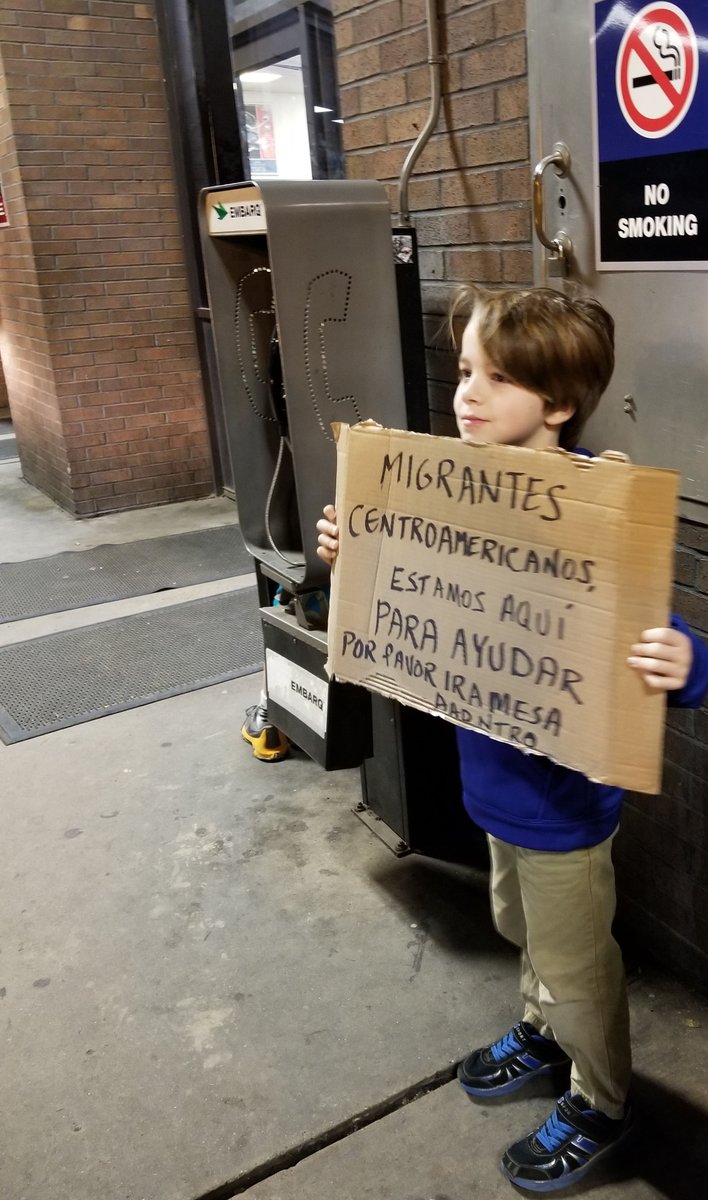 EMBARQ
NO
SMOKING
MIGRANTES
CENTROAMERICANOS,
ESTAMOS AQUÍ
PARA AYUDAR
POR FAVOR IR A MESA
ADNTRO
EMBARQ